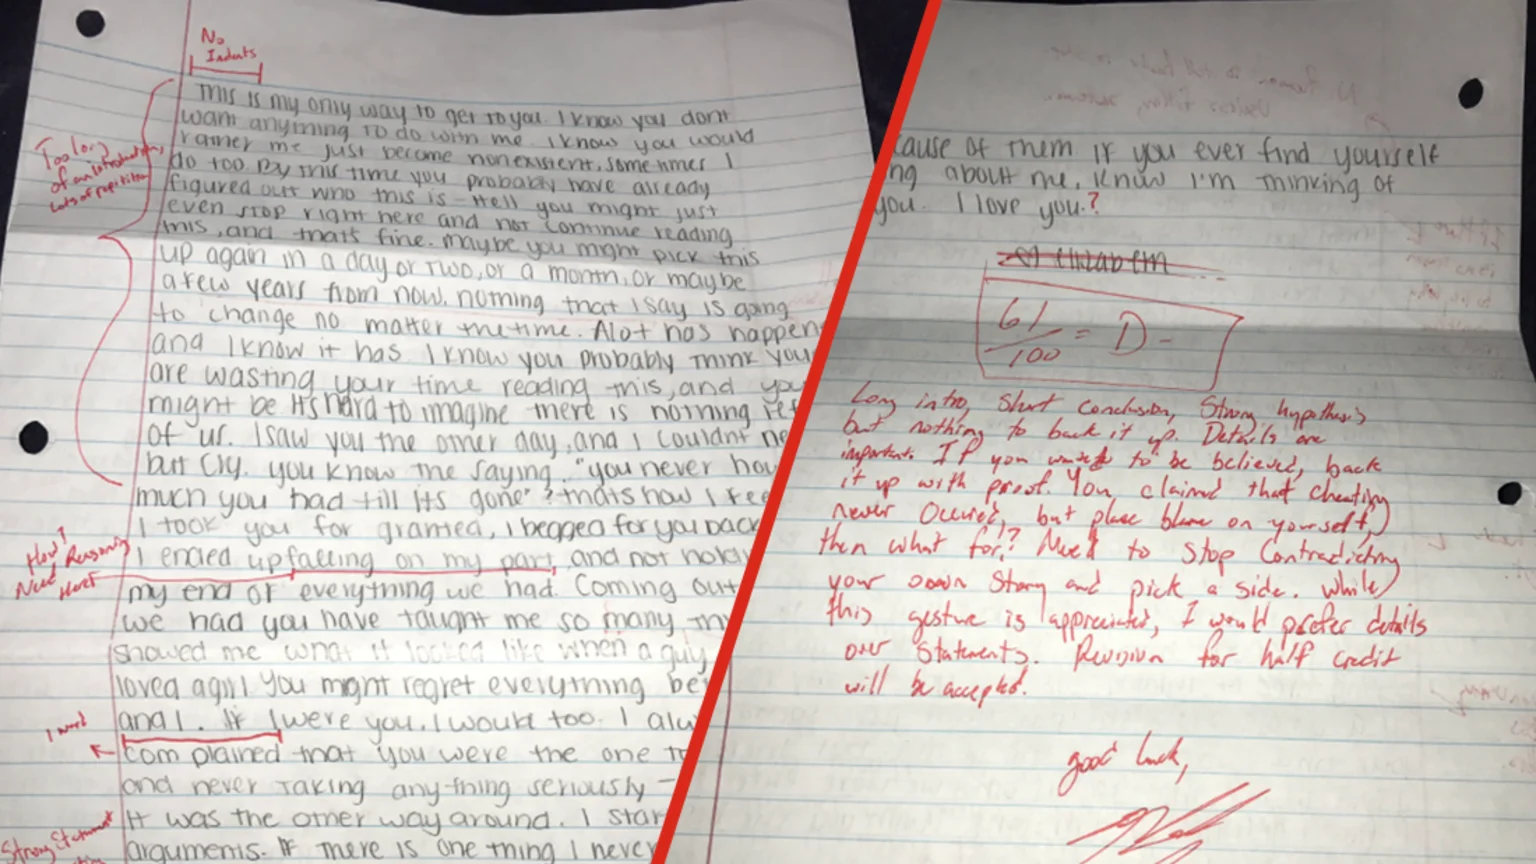 No
Indents
This is my only way to get to you. I know you dont
want anything to do with me. I know you would
rather me just become nonexistent, sometimes I
do too. By this time you probably have already
figured out who this is - Hell you might just
even stop right here and not continue reading
this, and thats fine. maybe you might pick this
up again in a day or two, or a month, or maybe
a few years from now. nothing that I say is going
to change no matter the time. Alot has happen
and I know it has. I know you probably think you
are wasting your time reading this, and you
might be. Its hard to imagine there is nothing lef
of us. I saw you the other day, and I couldnt he
but cry. you know the saying, "you never how
much you had till its gone"? thats how I fee
I took you for granted, I begged for you back
I ended up falling on my part, and not holdi
my end of everything we had. Coming out
we had you have taught me so many thi
showed me what it looked like when a guy
loved a girl. You might regret everything be
and I. If I were you, I would too. I alw
complained that you were the one to
and never taking any-thing seriously -
It was the other way around. I star
arguments. If there is one thing I never
Too long
of an introduction,
lots of repetition
How?
Need Reasoning
Here
I word
Strong Statement
cause of them If you ever find yourself
ng about me, Know I'm thinking of
you. I love you.?
Elizabeth
61/100 = D-
Long intro, Short Conclusion, Strong hypothesis
but nothing to back it up. Details are
important. If you want to be believed, back
it up with proof. You claimed that cheating
never occured, but place blame on yourself,
then what for!? Need to stop Contradicting
your own Story and pick a side. While
this gesture is appreciated, I would prefer details
over Statements. Revision for half credit
will be accepted.
good luck,